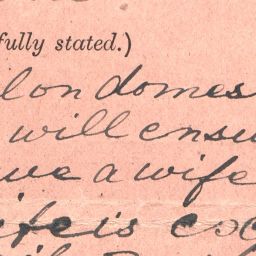 fully stated.)
on domes
will ensu
ve a wife
ife is